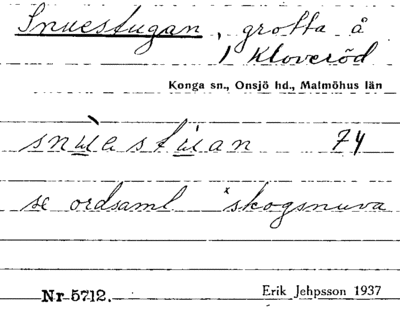 Snuestugan, grotta å
1 Kloveröd
Konga sn., Onsjö hd., Malmöhus län
snùastuan 74
se ordsaml *skogsnuva
Nr 5712. Erik Jehpsson 1937